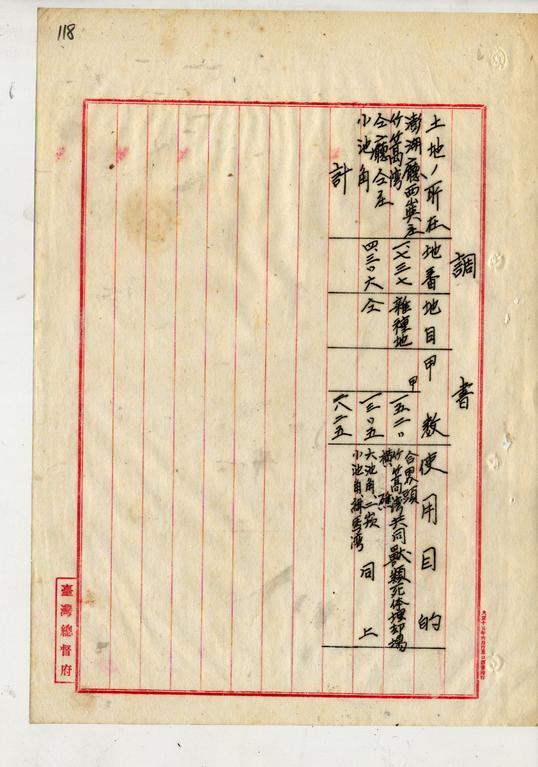 118
調書
土地ノ所在
地番
地目
甲数
使用目的
澎湖廳西嶼庄
竹篙湾
一、七三七
雑種地
甲
一五二〇
合界頭
竹篙湾共同獣類死体埋却場
横礁
仝廳仝庄
小池角
四、三〇六
仝
一三〇五
大池角、二崁
小池角緝馬湾
同上
計
二八二五
臺灣總督府